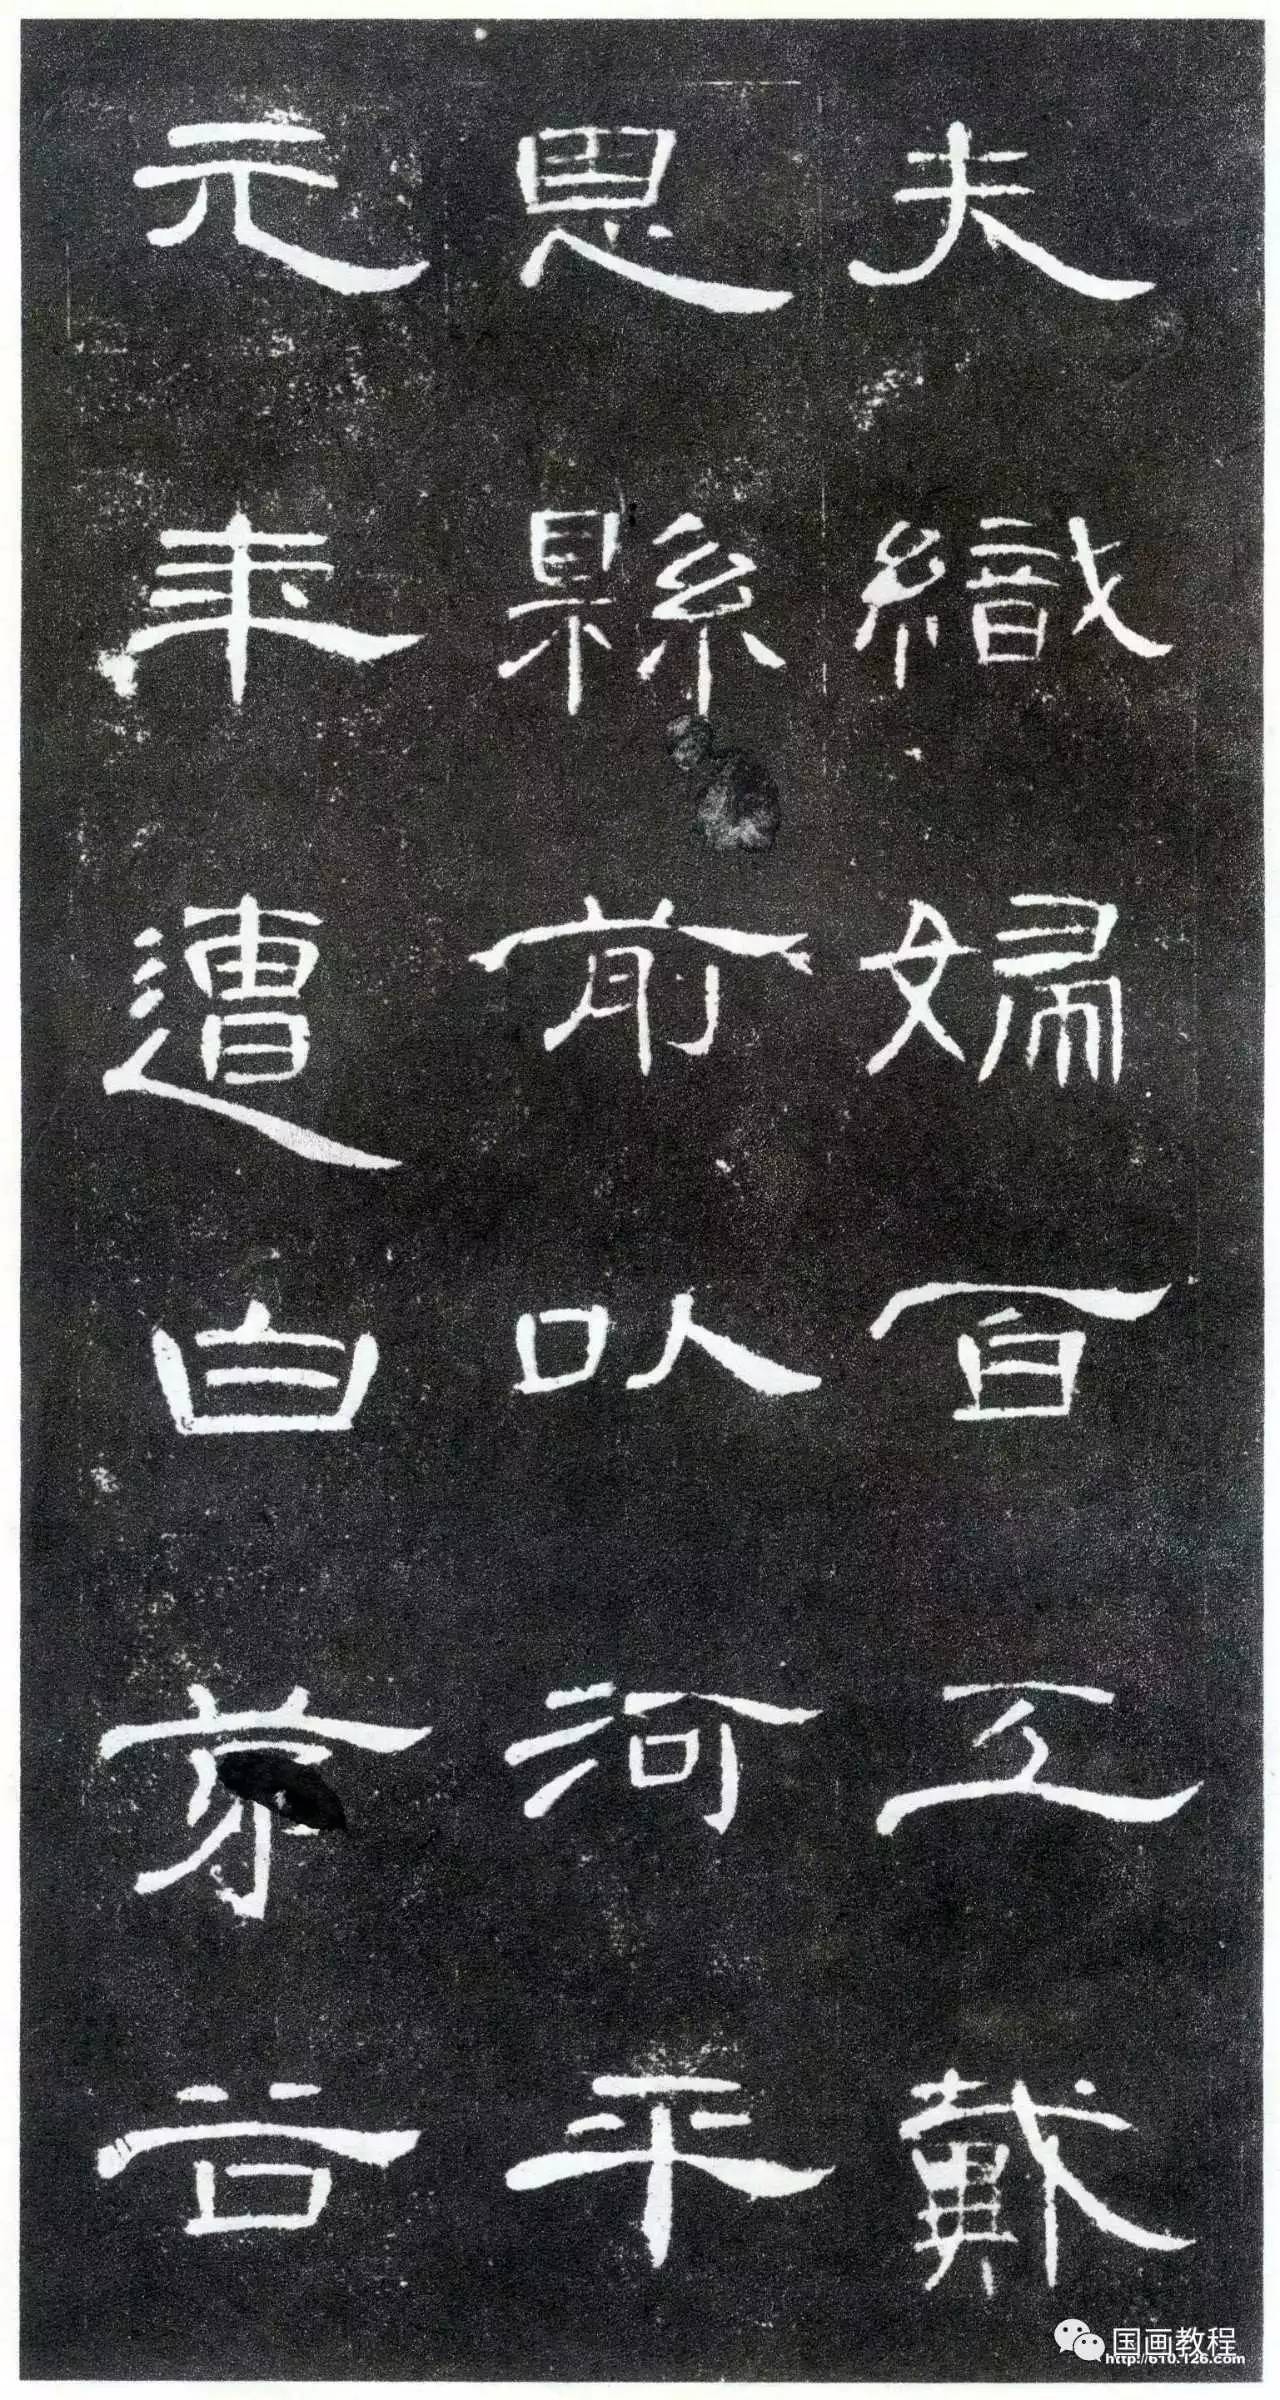 夫織婦百工戴
恩縣前以河平
元年遭白茅谷
国画教程
http://610.126.com